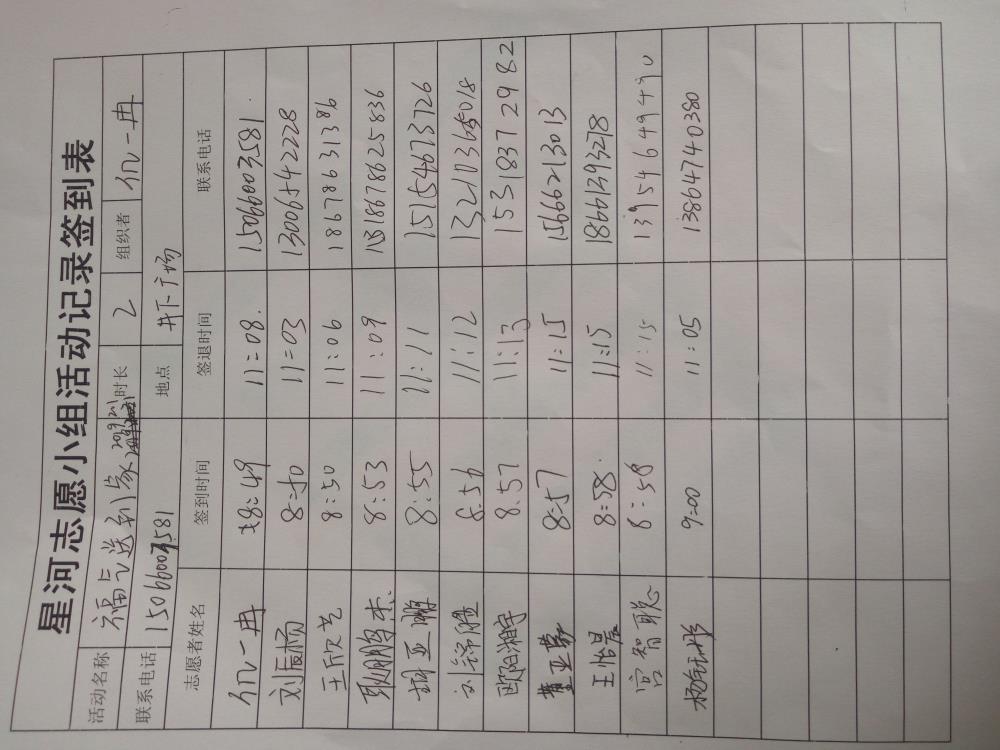 星河志愿小组活动记录签到表
活动名称 福气送到家 2019.2.1 时长 2 组织者 一冉
联系电话 15066003581 地点 井下广场
志愿者姓名 签到时间 签退时间 联系电话
一冉 8:49 11:08. 15066003581.
刘辰杨 8:50 11:03 13006542228
王欣艺 8:50 11:06 18678631386
耿鹏杰 8:53 11:09 18678625836
亚鹏 8:55 11:11 15154673726
刘铭胜 8:56 11:12 13210365018
欧阳湘宇 8.57 11:13 15318372982
董亚茹 8:57 11:15 15666213013
王怡晨 8:58. 11:15 18661393278
宫智聪 8:58 11:15 13954649490
杨钰彤 9:00 11:05 13864740380